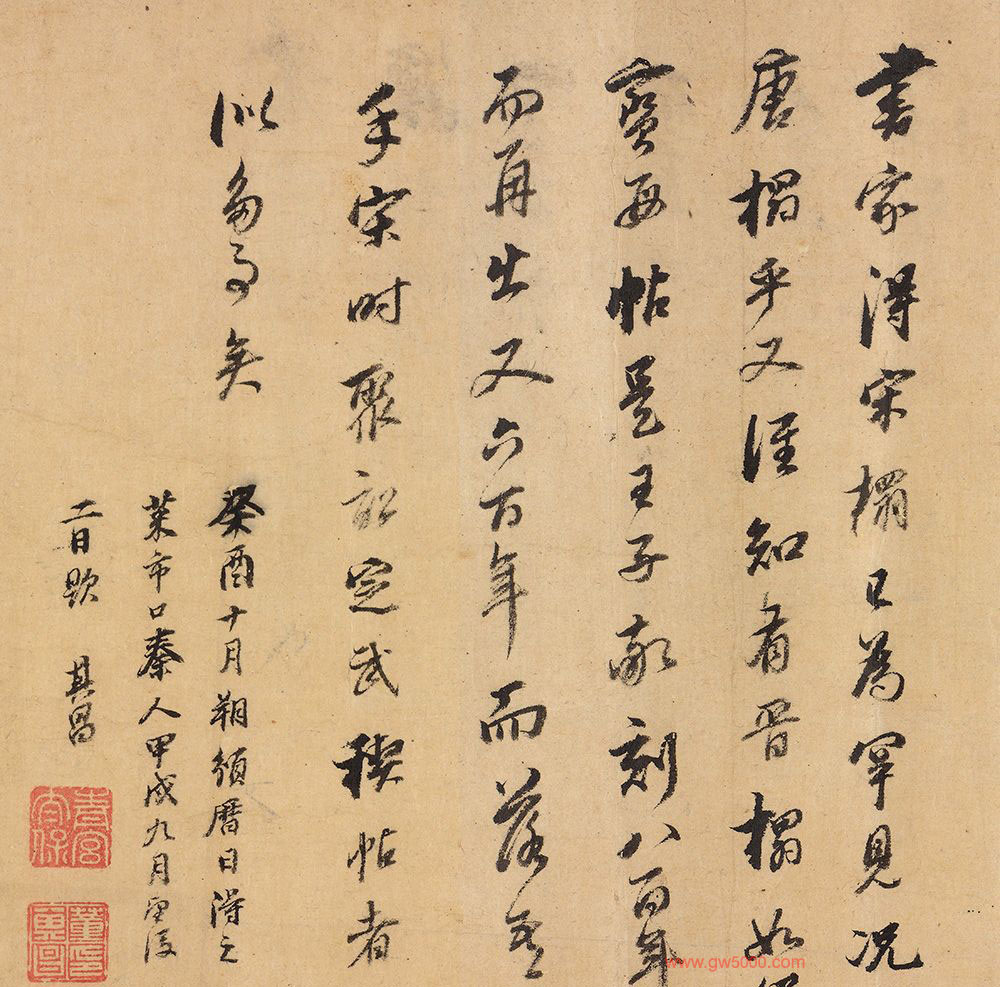 書家得宋榻已為罕見況
唐榻乎又誰知有晉榻如
寶母帖是王子敬刻八百年
而再出又六百年而落吾
手宋時聚訟定武稧帖者
似多事矣
癸酉十月朔頒曆日得之
菜市口秦人甲戌九月
二日題 其昌
宮保
董其昌
www.gw5000.com